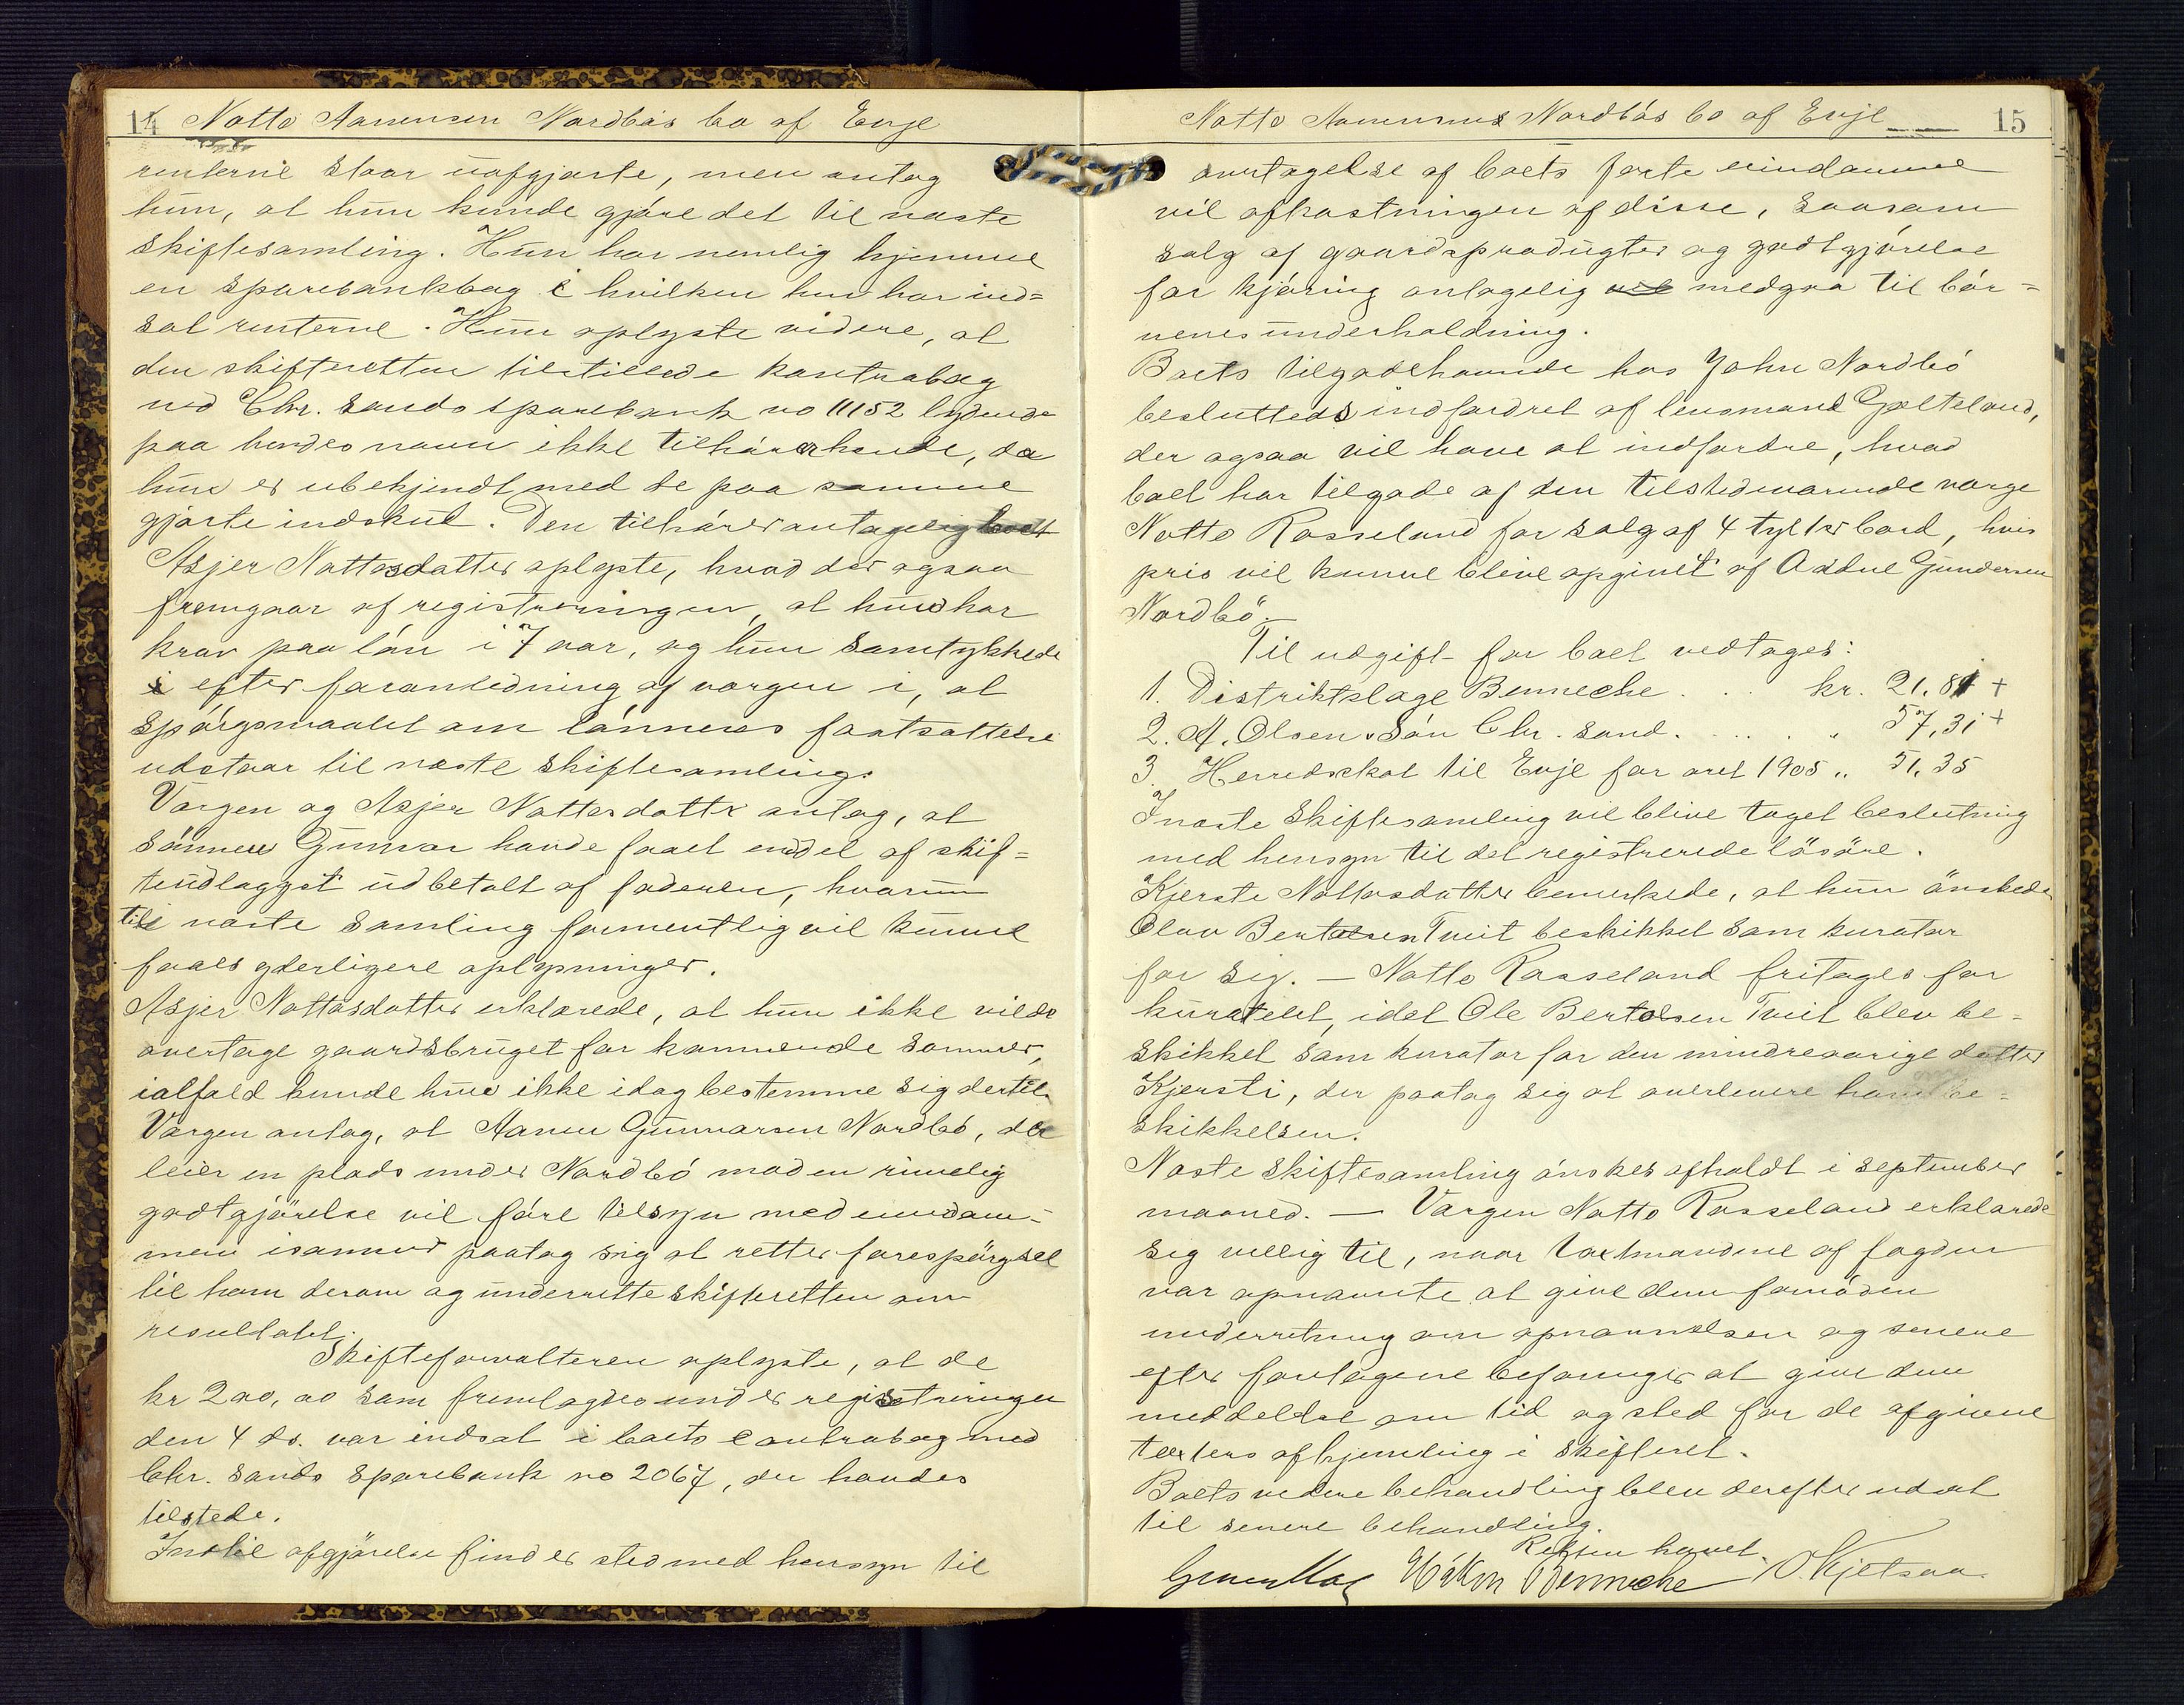 14 Notto Aanensen Nordbøs bo af Evje
renterne staar uafgjorte, men antog
hun, at hun kunde gjøre det til næste
skiftesamling. Hun har nemlig hjemme
en sparebankbog i hvilken hun har ind=
sat renterne. Hun oplyste videre, at
den skifteretten tilstillede kontrabog
med Chr. sands sparebank no 11152 lydende
paa hendes navn ikke tilhører hende, da
hun er ubekjendt med de paa samme
gjorte indskud. Den tilhører antagelig boet
Asjer Nottosdatter oplyste, hvad der ogsaa
fremgaar af registreringen, at hun har
krav paa løn i 7 aar, og hun samtykkede
efter foranledning af værgen i, at
spørgsmaalet om lønnens fastsættelse
udstaar til næste skiftesamling.
Værgen og Asjer Nottosdatter antog, at
sønnen Gunnar havde faaet endel af skif=
teudlægget udbetalt af faderen, hvorom
til næste samling formentlig vil kunne
faaes yderligere oplysninger.
Asjer Nottosdatter erklærede, at hun ikke vilde
overtage gaardsbruget for kommende sommer,
ialfald kunde hun ikke idag bestemme sig dertil.
Værgen antog, at Aanen Gunnarsen Nordbø, der
leier en plads under Nordbø mod en rimelig
godtgjørelse vil føre tilsyn med eiendom=
men isammen paatog sig at rette forespørgsel
til ham derom og underrette skifteretten om
resultatet.
Skifteforvalteren oplyste, at de
kr 200,00 som fremlagdes under registreringen
den 4 ds. var indsat i boets contrabog med
Chr. sands sparebank no 2067, der havdes
tilstede.
Indtil afgjørelse finder sted med hensyn til
Notto Aanensens Nordbøs bo af Evje 15
overtagelse af boets faste eiendomme
vil afkastningen af disse, saasom
salg af gaardsprodugter og godtgjørelse
for kjøring antagelig medgaa til bør=
nenes underholdning.
Boets tilgodehavende hos John Nordbø
besluttedes indfordret af lensmand Gjelteland,
der ogsaa vil have at indfordre, hvad
boet har tilgode af den tilstedeværende værge
Notto Rosseland for salg af 4 tylter bord, hvis
pris vil kunne blive opgivet af Asdne Gundersen
Nordbø.
Til udgift for boet vedtages:
1. Distriktslæge Benneche . . . kr. 21.81 +
2. A. Olsen & Søn Chr. sand. . . . . „ 57,31 +
3. Herredsskat til Evje for aret 1905 „ 51,35
I næste skiftesamling vil blive taget beslutning
med hensyn til det registrerede løsøre.
Kjerste Nottosdatter bemerkede, at hun ønskede
Olav Bertelsen Tveit beskikket som kurator
for sig. — Notto Rosseland fritages for
kuratelet, idet Ole Bertelsen Tveit blev be=
skikket som kurator for den mindreaarige datter
Kjersti, der paatog sig at overlevere ham be=
skikkelsen.
Næste skiftesamling ønskes afholdt i september
maaned. — Værgen Notto Rosseland erklærede
sig villig til, naar taxtmændene af fogden
var opnævnte at give dem fornøden
underretning om opnævnelsen og senere
efter foretagne befaringer at give dem
meddelelse om tid og sted for de afgivne
taxters afhjemling i skifteret.
Boets videre behandling blev derefter udsat
til senere behandling.
Retten hævet.
Håkon Benneche O. Kjetsaa